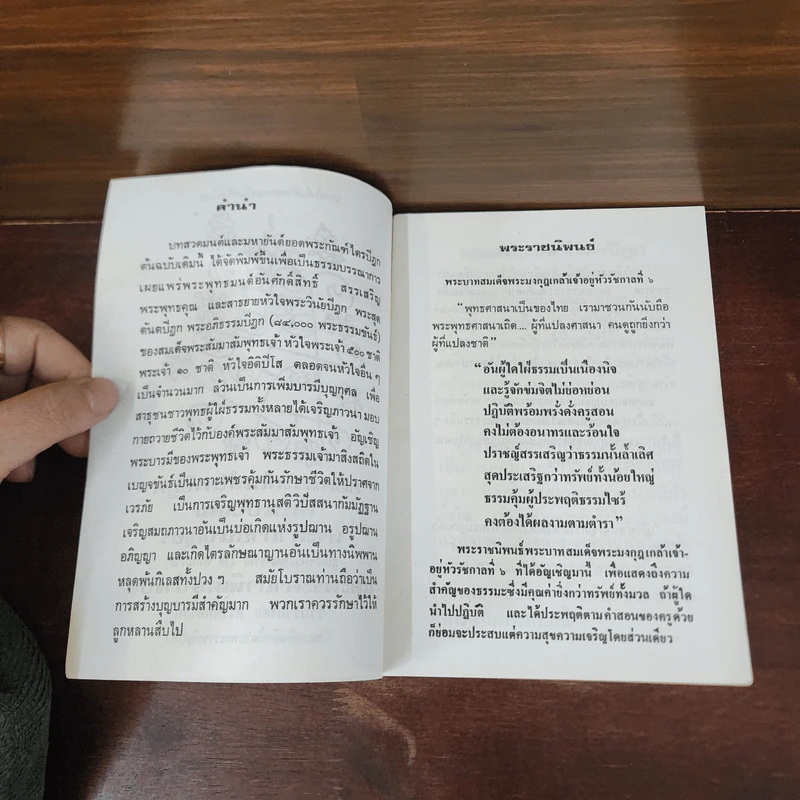 คำนำ
บทสวดมนต์และมหายันต์ยอดพระกัณฑ์ไตรปิฎก
ต้นฉบับเดิมนี้ ได้จัดพิมพ์ขึ้นเพื่อเป็นธรรมบรรณาการ
เผยแพร่พระพุทธมนต์อันศักดิ์สิทธิ์ สรรเสริญ
พระพุทธคุณ และสาธยายหัวใจพระวินัยปิฎก พระสุต
ตันตปิฎก พระอภิธรรมปิฎก (๘๔,๐๐๐ พระธรรมขันธ์)
ของสมเด็จพระสัมมาสัมพุทธเจ้า หัวใจพระเจ้า ๕๐๐ ชาติ
พระเจ้า ๑๐ ชาติ หัวใจอิติปิโส ตลอดจนหัวใจอื่น ๆ
เป็นจำนวนมาก ล้วนเป็นการเพิ่มบารมีบุญกุศล เพื่อ
สาธุชนชาวพุทธผู้ใฝ่ธรรมทั้งหลายได้เจริญภาวนา มอบ
กายถวายชีวิตไว้กับองค์พระสัมมาสัมพุทธเจ้า อัญเชิญ
พระบารมีของพระพุทธเจ้า พระธรรมเจ้ามาสิงสถิตใน
เบญจขันธ์เป็นเกราะเพชรคุ้มกันรักษาชีวิตให้ปราศจาก
เวรภัย เป็นการเจริญพุทธานุสติวิปัสสนากัมมัฏฐาน
เจริญสมถภาวนาอันเป็นบ่อเกิดแห่งรูปฌาน อรูปฌาน
อภิญญา และเกิดไตรลักษณาญานอันเป็นทางนิพพาน
หลุดพ้นกิเลสทั้งปวง ๆ สมัยโบราณท่านถือว่าเป็น
การสร้างบุญบารมีสำคัญมาก พวกเราควรรักษาไว้ให้
ลูกหลานสืบไป
พระราชนิพนธ์
พระบาทสมเด็จพระมงกุฎเกล้าเจ้าอยู่หัวรัชกาลที่ ๖
"พุทธศาสนาเป็นของไทย เรามาชวนกันนับถือ
พระพุทธศาสนาเถิด.... ผู้ที่แปลงศาสนา คนดูถูกยิ่งกว่า
ผู้ที่แปลงชาติ"
"อันผู้ใดใฝ่ธรรมเป็นเนืองนิจ
และรู้จักข่มจิตไม่ย่อหย่อน
ปฏิบัติพร้อมพรั่งดั่งครูสอน
คงไม่ต้องอนาทรและร้อนใจ
ปราชญ์สรรเสริญว่าธรรมนั้นล้ำเลิศ
สุดประเสริฐกว่าทรัพย์ทั้งน้อยใหญ่
ธรรมคุ้มผู้ประพฤติธรรมไซร้
คงต้องได้ผลงามตามตำรา"
พระราชนิพนธ์พระบาทสมเด็จพระมงกุฎเกล้าเจ้า-
อยู่หัวรัชกาลที่ ๖ ที่ได้อัญเชิญมานี้ เพื่อแสดงถึงความ
สำคัญของธรรมะซึ่งมีคุณค่ายิ่งกว่าทรัพย์ทั้งมวล ถ้าผู้ใด
นำไปปฏิบัติ และได้ประพฤติตามคำสอนของครูด้วย
ก็ย่อมจะประสบแต่ความสุขความเจริญโดยส่วนเดียว